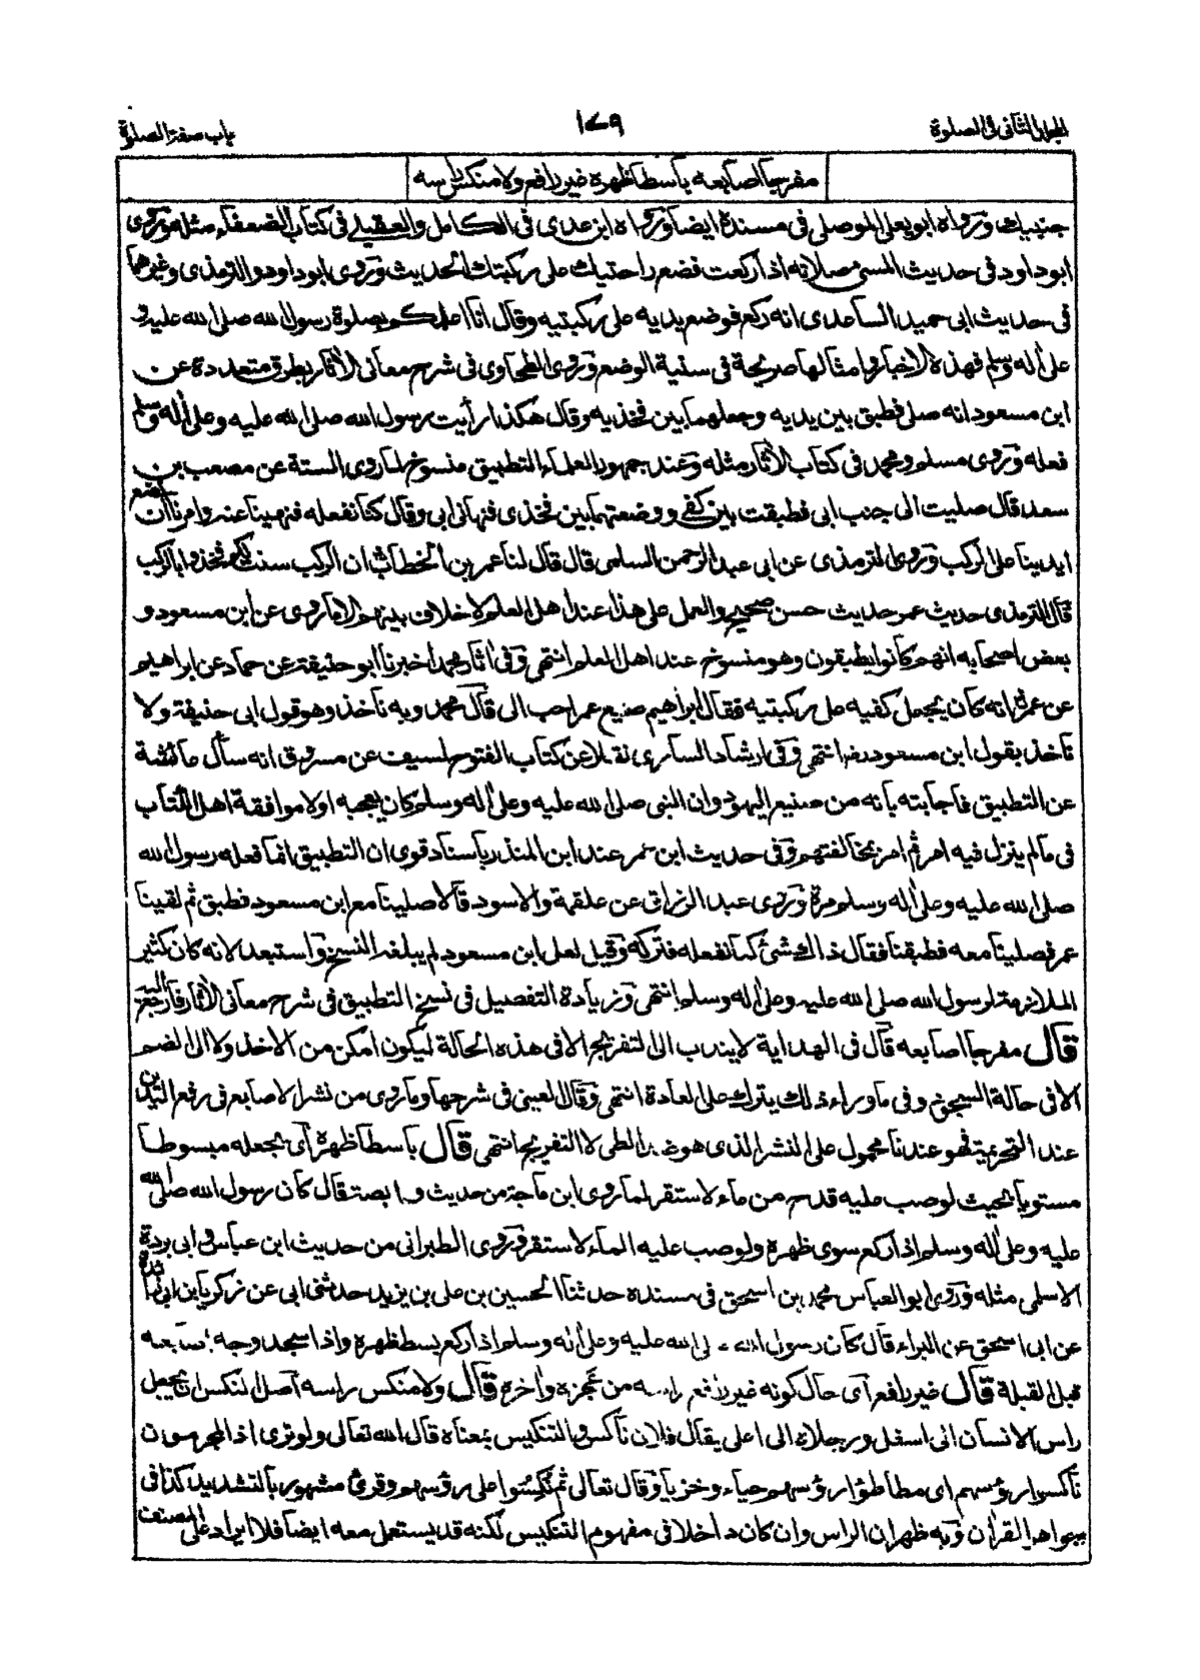 الجلد الثانی فی الصلوة
١٧٩
باب صفة الصلوة
مفرجا اصابعه باسطا ظهره غیر رافع ولا منکس راسه
جنبیك ورواه ابو یعلی الموصلی فی مسنده ایضا ورواه ابن عدی فی الکامل والعقیلی فی کتاب الضعفاء مثله وروی
ابو داود فی حدیث المسیء صلاته اذا رکعت فضع راحتیك علی رکبتك الحدیث وروی ابو داود والترمذی وغیرهما
فی حدیث ابی حمید الساعدی انه رکع فوضع یدیه علی رکبتیه وقال انا اعلمکم بصلوة رسول الله صلی الله علیه و
علی اله وسلم فهذه الاخبار وامثالها صریحة فی سنیة الوضع وروی الطحاوی فی شرح معانی الآثار بطرق متعددة عن
ابن مسعود انه صلی فطبق بین یدیه وجعلهما بین فخذیه وقال هکذا رأیت رسول الله صلی الله علیه وعلی اله وسلم
فعله وروی مسلم ومحمد فی کتاب الآثار مثله وعند جمهور العلماء التطبیق منسوخ لما روی الستة عن مصعب بن
سعد قال صلیت الی جنب ابی فطبقت بین کفی ووضعتهما بین فخذی فنهانی ابی وقال کنا نفعله فنهینا عنه وامرنا ان نضع
ایدینا علی الرکب وروی الترمذی عن ابی عبد الرحمن السلمی قال قال لنا عمر بن الخطاب ان الرکب سنت لکم فخذوا بالرکب
قال الترمذی حدیث عمر حدیث حسن صحیح والعمل علی هذا عند اهل العلم لا خلاف بینهم الا ما روی عن ابن مسعود و
بعض اصحابه انهم کانوا یطبقون وهو منسوخ عند اهل العلم انتهی وفی آثار محمد اخبرنا ابو حنیفة عن حماد عن ابراهیم
عن عمر انه کان یجعل کفیه علی رکبتیه فقال ابراهیم صنیع عمر احب الی قال محمد وبه ناخذ وهو قول ابی حنیفة ولا
ناخذ بقول ابن مسعود رض انتهی وفی ارشاد الساری نقلا عن کتاب الفتوح لسیف عن مسروق انه سأل عائشة
عن التطبیق فاجابته بانه من صنیع الیهود وان النبی صلی الله علیه وعلی اله وسلم کان یعجبه اولا موافقة اهل الکتاب
فی ما لم ینزل فیه امر ثم امر بمخالفتهم وفی حدیث ابن عمر عند ابن المنذر باسناد قوی ان التطبیق انما فعله رسول الله
صلی الله علیه وعلی اله وسلم مرة وروی عبد الرزاق عن علقمة والاسود قالا صلینا مع ابن مسعود فطبق ثم لقینا
عمر فصلینا معه فطبقنا فقال ذاك شئ کنا نفعله فترکه وقیل لعل ابن مسعود لم یبلغه النسخ واستبعد لانه کان کثیر
الملازمة لرسول الله صلی الله علیه وعلی اله وسلم انتهی وزیادة التفصیل فی نسخ التطبیق فی شرح معانی الآثار فارجع الیه
قال مفرجا اصابعه قال فی الهدایة لا یندب الی التفریج الا فی هذه الحالة لیکون امکن من الاخذ ولا الی الضم
الا فی حالة السجود وفی ما وراء ذلك یترك علی العادة انتهی وقال العینی فی شرحها وما روی من نشر الاصابع فی رفع الیدین
عند التحریمة فهو عندنا محمول علی النشر الذی هو ضد الطی لا التفریج انتهی قال باسطا ظهره ای یجعله مبسوطا
مستویا بحیث لو صب علیه قدح من ماء لاستقر لما روی ابن ماجة من حدیث وابصة قال کان رسول الله صلی الله
علیه وعلی اله وسلم اذا رکع سوی ظهره ولو صب علیه الماء لاستقر وروی الطبرانی من حدیث ابن عباس وابی بردة
الاسلمی مثله وروی ابو العباس محمد بن اسحق فی مسنده حدثنا الحسین بن علی بن یزید حدثنی ابی عن زکریا بن ابی زائدة
عن ابی اسحق عن البراء قال کان رسول الله صلی الله علیه وعلی اله وسلم اذا رکع بسط ظهره واذا سجد وجه اصابعه
قبل القبلة قال غیر رافع ای حال کونه غیر رافع راسه من عجزه واخره قال ولا منکس راسه اصل النکس ان یجعل
راس الانسان الی اسفل ورجلاه الی اعلی یقال فلان ناکس والتنکیس بمعناه قال الله تعالی ولو تری اذ المجرمون
ناکسوا رؤسهم ای مطاطؤا رؤسهم حیاء وخزیا وقال تعالی ثم نکسوا علی رؤسهم وقرئ مشهور بالتشدید کذا فی
جواهر القرآن وبه ظهر ان الراس وان کان داخلا فی مفهوم التنکیس لکنه قد یستعمل معه ایضا فلا ایراد علی المصنف